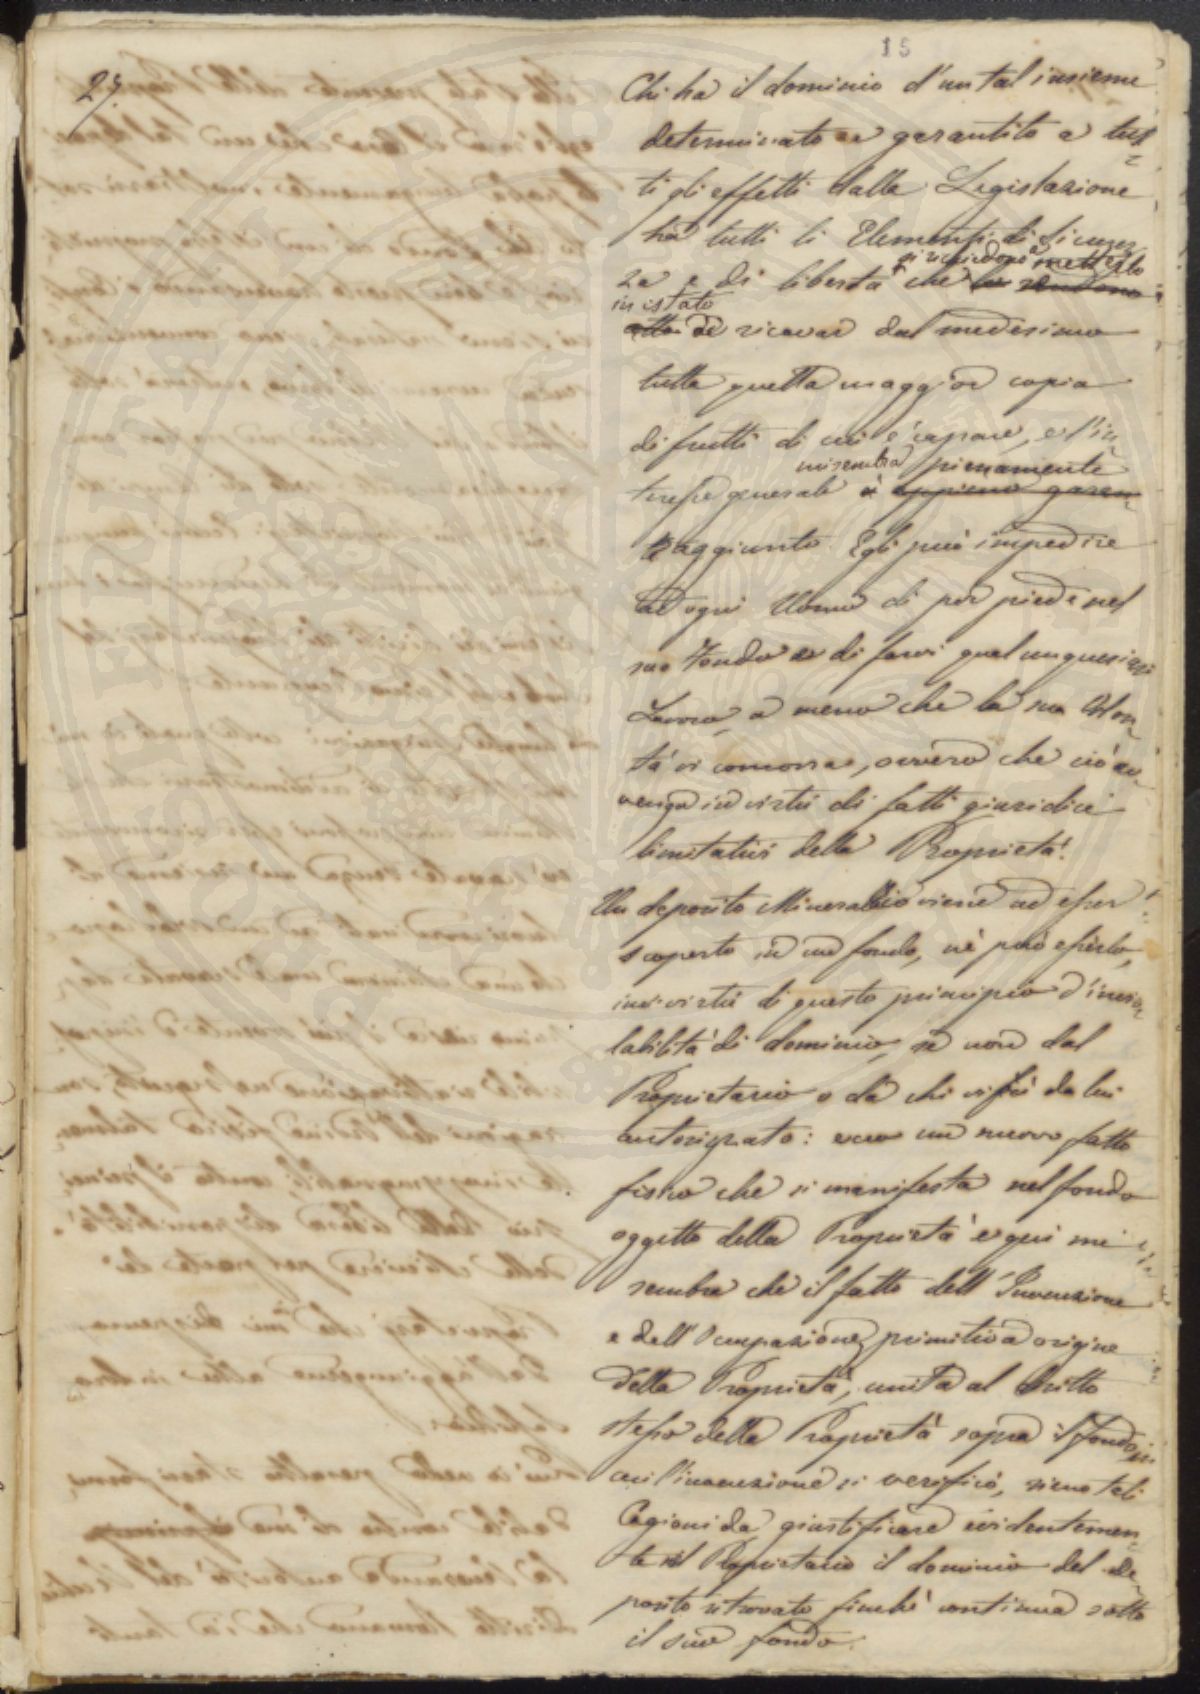 15
27.
Chi ha il dominio d'un tal insieme
determinato e garantito a tut-
ti gli effetti dalla Legislazione
ha tutti li Elementi di sicurez-
si richiedono a metterlo
za e di libertà che lo rendono
in istato
atto di ricavar dal medesimo
tutta quella maggior copia
di frutti di cui è capace, e l'in-
mi sembra pienamente
teresse generale è appieno garan-
raggiunto. Egli può impedire
ad ogni Uomo di por piede nel
suo Fondo e di farvi qualunquesiasi
Lavoro, a meno che la sua Volon-
tà vi concorra, ovvero che ciò av-
venga in virtù di fatti giuridici
limitativi della Proprietà.
Un deposito Minerallico viene ad esser
scoperto in un fondo, nè può esserlo,
in virtù di questo principio d'invio-
labilità di dominio, se non dal
Proprietario o da chi vi fù da lui
autorizzato: ecco un nuovo fatto
fisico che si manifesta nel fondo
oggetto della Proprietà e qui mi
sembra che il fatto dell'Invenzione
e dell'Occupazione primitiva origine
della Proprietà, unita al dritto
stesso della Proprietà sopra il fondo in
cui l'invenzione si verificò, sieno tali
Cagioni da giustificare evidentemen-
te nel Proprietario il dominio del de-
posito ritrovato finchè continua sotto
il suo fondo.